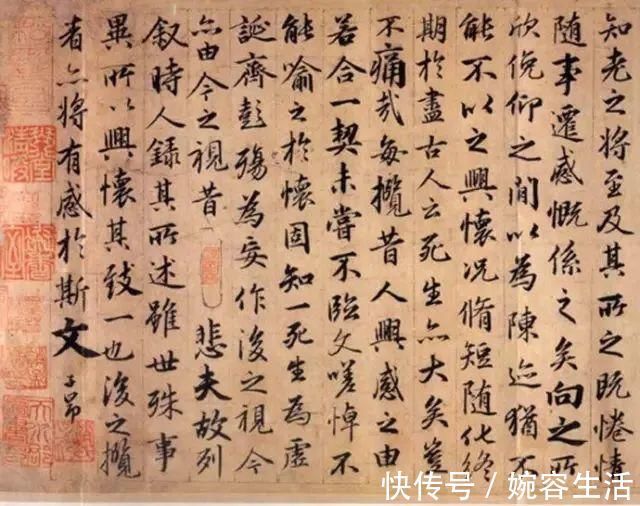 知老之将至及其所之既惓情
随事遷感慨係之矣向之所
欣俛仰之間以為陳迹猶不
能不以之興懷况脩短随化終
期於盡古人云死生亦大矣豈
不痛哉每攬昔人興感之由
若合一契未嘗不臨文嗟悼不
能喻之於懷固知一死生為虚
誕齊彭殤為妄作後之視今
亦由今之視昔 悲夫故列
叙時人録其所述雖世殊事
異所以興懷其致一也後之攬
者亦将有感於斯文 子昂
快传号/婉容生活